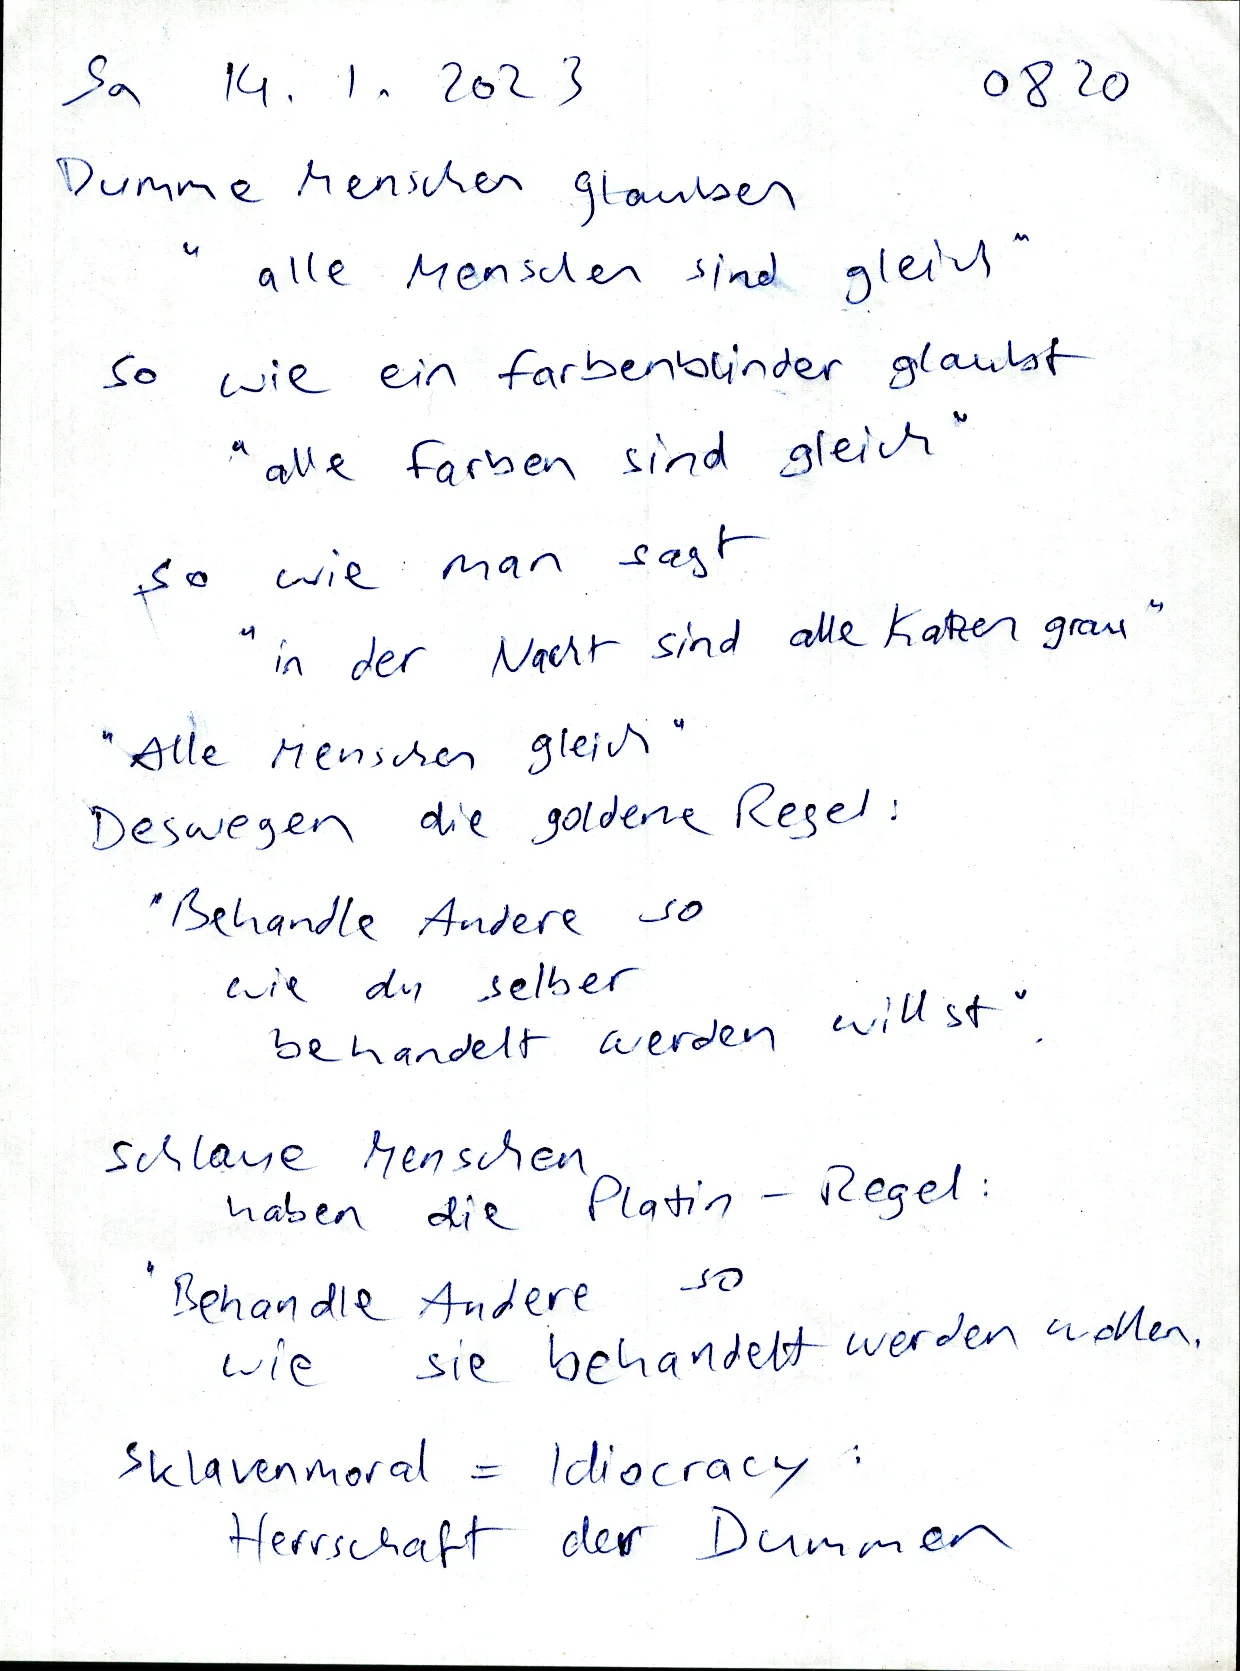 Sa 14. 1. 2023 0820
Dumme Menschen glauben
"alle Menschen sind gleich"
so wie ein Farbenblinder glaubt
"alle Farben sind gleich"
so wie man sagt
"in der Nacht sind alle Katzen grau"
"Alle Menschen gleich"
Deswegen die goldene Regel:
"Behandle Andere so
wie du selber
behandelt werden willst".
Schlaue Menschen
haben die Platin-Regel:
"Behandle Andere so
wie sie behandelt werden wollen.
Sklavenmoral = Idiocracy:
Herrschaft der Dummen